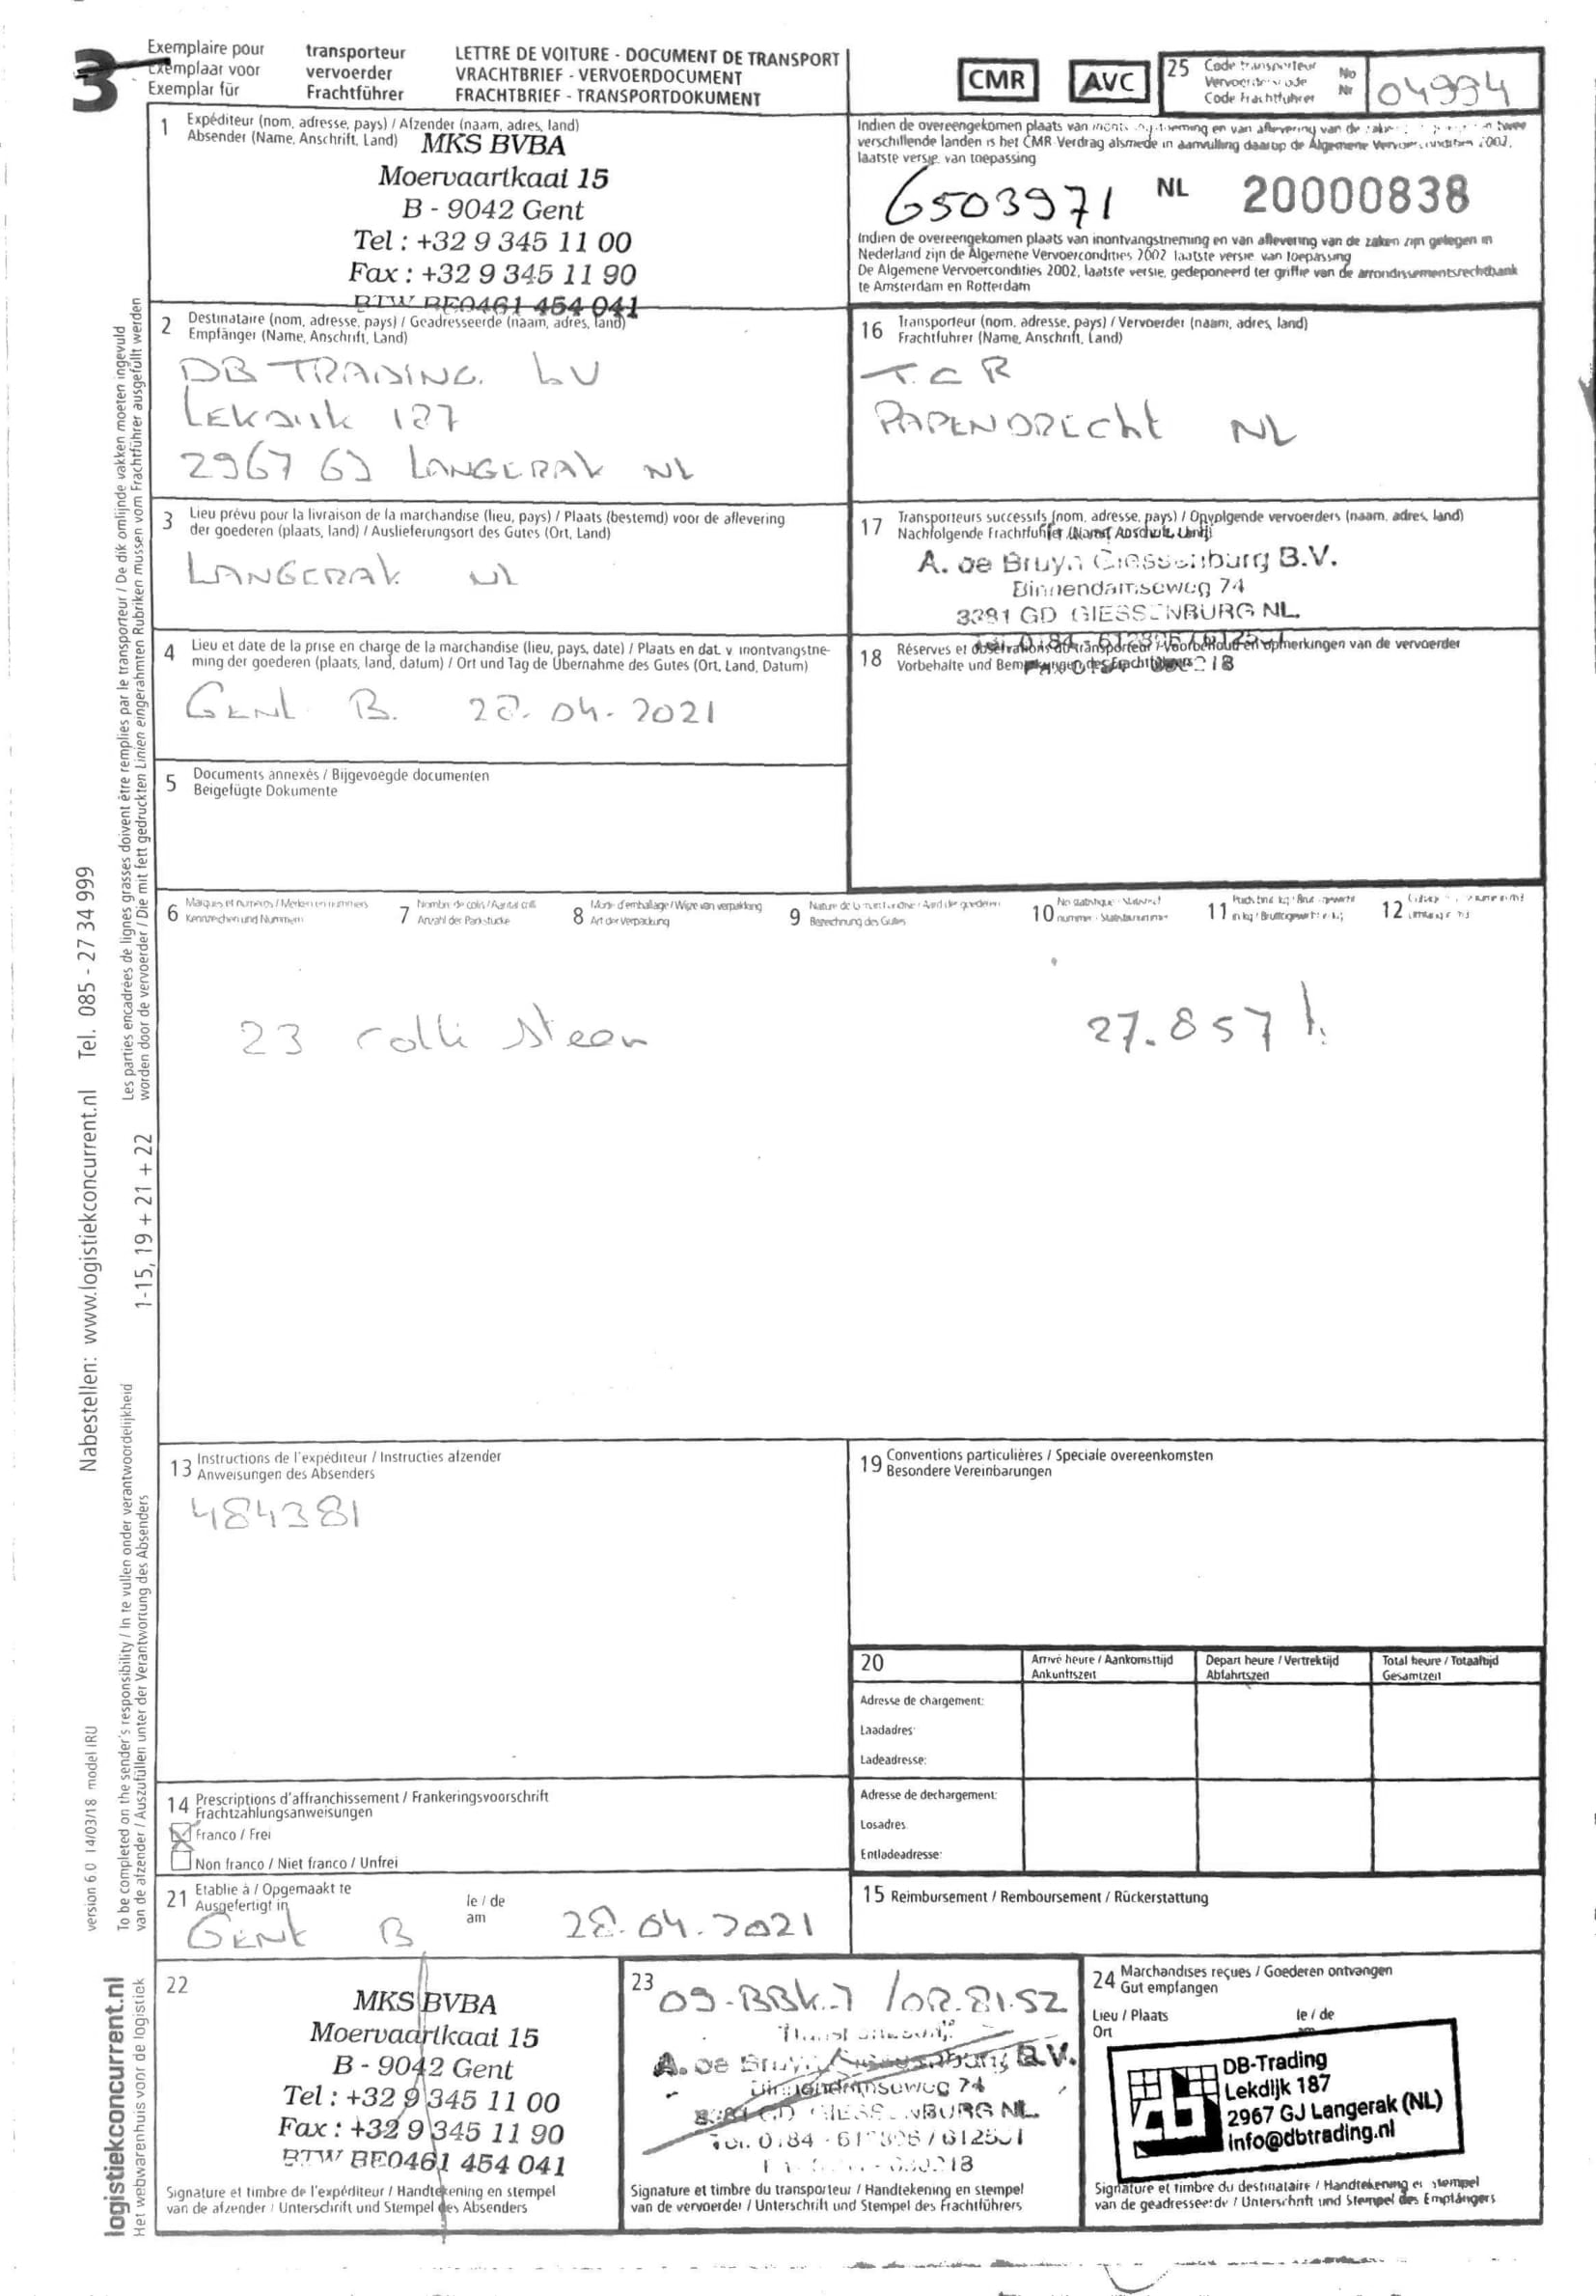 3
Exemplaire pour transporteur
Exemplaar voor vervoerder
Exemplar für Frachtführer
LETTRE DE VOITURE - DOCUMENT DE TRANSPORT
VRACHTBRIEF - VERVOERDOCUMENT
FRACHTBRIEF - TRANSPORTDOKUMENT
CMR
AVC
25 Code transporteur
Vervoerderscode
Code Frachtführer
No
Nr
04994
1 Expéditeur (nom, adresse, pays) / Afzender (naam, adres, land)
Absender (Name, Anschrift, Land)
MKS BVBA
Moervaartkaai 15
B - 9042 Gent
Tel : +32 9 345 11 00
Fax : +32 9 345 11 90
BTW BE0461 454 041
Indien de overeengekomen plaats van en van aflevering van de
verschillende landen is het CMR Verdrag alsmede in aanvulling daarop de Algemene 2002,
laatste versie van toepassing
6503971 NL 20000838
Indien de overeengekomen plaats van inontvangstneming en van aflevering van de zaken zijn gelegen in
Nederland zijn de Algemene Vervoercondities 2002 laatste versie van toepassing
De Algemene Vervoercondities 2002, laatste versie, gedeponeerd ter griffie van de arrondissementsrechtbank
te Amsterdam en Rotterdam
2 Destinataire (nom, adresse, pays) / Geadresseerde (naam, adres, land)
Empfänger (Name, Anschrift, Land)
DB TRADING bv
LEKDIJK 187
2967 GJ LANGERAK NL
16 Transporteur (nom, adresse, pays) / Vervoerder (naam, adres, land)
Frachtführer (Name, Anschrift, Land)
T.C.R
PAPENDRECHT NL
3 Lieu prévu pour la livraison de la marchandise (lieu, pays) / Plaats (bestemd) voor de aflevering
der goederen (plaats, land) / Auslieferungsort des Gutes (Ort, Land)
LANGERAK NL
17 Transporteurs successifs (nom, adresse, pays) / Opvolgende vervoerders (naam, adres, land)
Nachfolgende Frachtführer
A. de Bruyn Giessenburg B.V.
Binnendamseweg 74
3381 GD GIESSENBURG NL.
4 Lieu et date de la prise en charge de la marchandise (lieu, pays, date) / Plaats en dat. v. inontvangstne-
ming der goederen (plaats, land, datum) / Ort und Tag de Übernahme des Gutes (Ort, Land, Datum)
GENT B. 28.04.2021
18 Réserves et transporteur / Voorbehoud en opmerkingen van de vervoerder
Vorbehalte und
5 Documents annexés / Bijgevoegde documenten
Beigefügte Dokumente
6 Marques et numéros / Merken en nummers
Kennzeichen und Nummern
7 Nombre de colis / Aantal colli
Anzahl der Packstücke
8 Mode d'emballage / Wijze van verpakking
Art der Verpackung
9 Nature de la marchandise / Aard der goederen
Bezeichnung des Gutes
10 11 12
23 colli steen 27.857
13 Instructions de l'expéditeur / Instructies afzender
Anweisungen des Absenders
484381
19 Conventions particulières / Speciale overeenkomsten
Besondere Vereinbarungen
20
Arrivé heure / Aankomsttijd
Ankunftszeit
Depart heure / Vertrektijd
Abfahrtszeit
Total heure / Totaaltijd
Gesamtzeit
Adresse de chargement:
Laadadres:
Ladeadresse:
Adresse de dechargement:
Losadres
Entladeadresse:
14 Prescriptions d'affranchissement / Frankeringsvoorschrift
Frachtzahlungsanweisungen
Franco / Frei
Non franco / Niet franco / Unfrei
21 Etablie à / Opgemaakt te
Ausgefertigt in
GENT B
le / de
am
28.04.2021
15 Reimbursement / Remboursement / Rückerstattung
22
MKS BVBA
Moervaartkaai 15
B - 9042 Gent
Tel : +32 9 345 11 00
Fax : +32 9 345 11 90
BTW BE0461 454 041
Signature et timbre de l'expéditeur / Handtekening en stempel
van de afzender / Unterschrift und Stempel des Absenders
23
09-BBK-7
A. de Bruyn Giessenburg B.V.
Binnendamseweg 74
3381 GD GIESSENBURG NL.
Signature et timbre du transporteur / Handtekening en stempel
van de vervoerder / Unterschrift und Stempel des Frachtführers
24 Marchandises reçues / Goederen ontvangen
Gut empfangen
Lieu / Plaats
Ort
le / de
DB-Trading
Lekdijk 187
2967 GJ Langerak (NL)
info@dbtrading.nl
Signature et timbre du destinataire / Handtekening en stempel
van de geadresseerde / Unterschrift und Stempel des Empfängers
Les parties encadrées de lignes grasses doivent être remplies par le transporteur / De dik omlijnde vakken moeten ingevuld
worden door de vervoerder / Die mit fett gedruckten Linien eingerahmten Rubriken müssen vom Frachtführer ausgefüllt werden
Nabestellen: www.logistiekconcurrent.nl Tel. 085 - 27 34 999
1-15, 19 + 21 + 22
To be completed on the sender's responsibility / In te vullen onder verantwoordelijkheid
van de afzender / Auszufüllen unter der Verantwortung des Absenders
version 6.0 14/03/18 model IRU
logistiekconcurrent.nl
Het webwarenhuis voor de logistiek